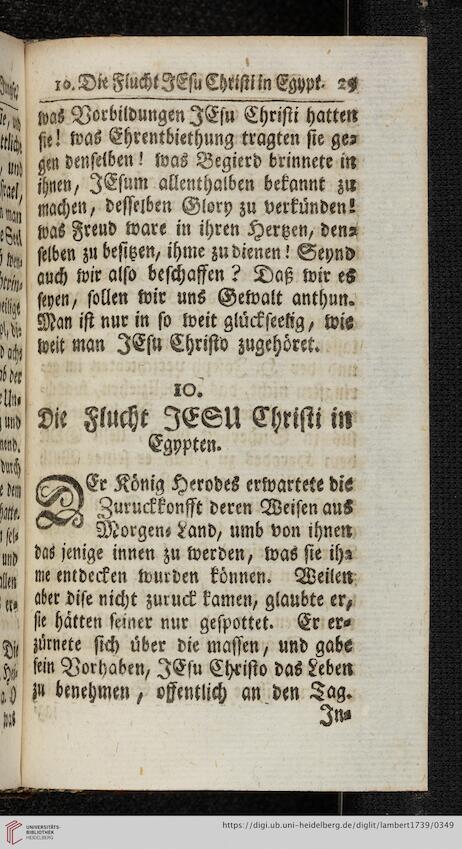 10. Die Flucht JEsu Christi in Egypt. 29
was Vorbildungen JEsu Christi hatten
sie! was Ehrentbiethung tragten sie ge⸗
gen denselben! was Begierd brinnete in
ihnen, JEsum allenthalben bekannt zu
machen, desselben Glory zu verkünden!
was Freud ware in ihren Hertzen, den⸗
selben zu besitzen, ihme zu dienen! Seynd
auch wir also beschaffen? Daß wir es
seyen, sollen wir uns Gewalt anthun.
Man ist nur in so weit glückseelig, wie
weit man JEsu Christo zugehöret.
10.
Die Flucht JESU Christi in
Egypten.
DEr König Herodes erwartete die
Zuruckkonfft deren Weisen aus
Morgen⸗Land, umb von ihnen
das jenige innen zu werden, was sie ih⸗
me entdecken wurden können. Weilen
aber dise nicht zuruck kamen, glaubte er,
sie hätten seiner nur gespottet. Er er⸗
zürnete sich über die massen, und gabe
sein Vorhaben, JEsu Christo das Leben
zu benehmen, offentlich an den Tag.
In⸗
UNIVERSITÄTS-
BIBLIOTHEK
HEIDELBERG
https://digi.ub.uni-heidelberg.de/diglit/lambert1739/0349